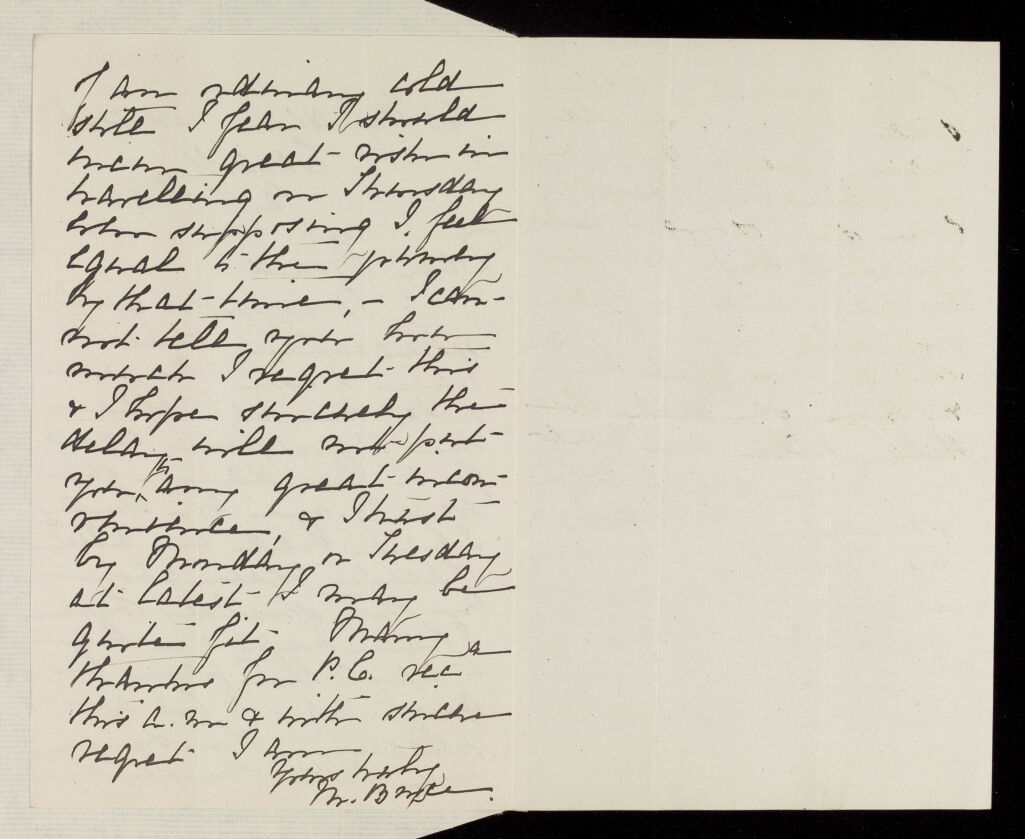 I am ordinary cold
state I fear I should
incur great risk in
travelling on Thursday
even supposing I felt
equal to the journey
by that time, - I can-
not tell you how
much I regret this
& I hope sincerely the
delay will not put
you to any great incon-
venience, & I trust
by Monday or Tuesday
at latest I may be
quite fit. Many
thanks for P.C. rec
this a.m & with sincere
regret I am
Yours truly
M.